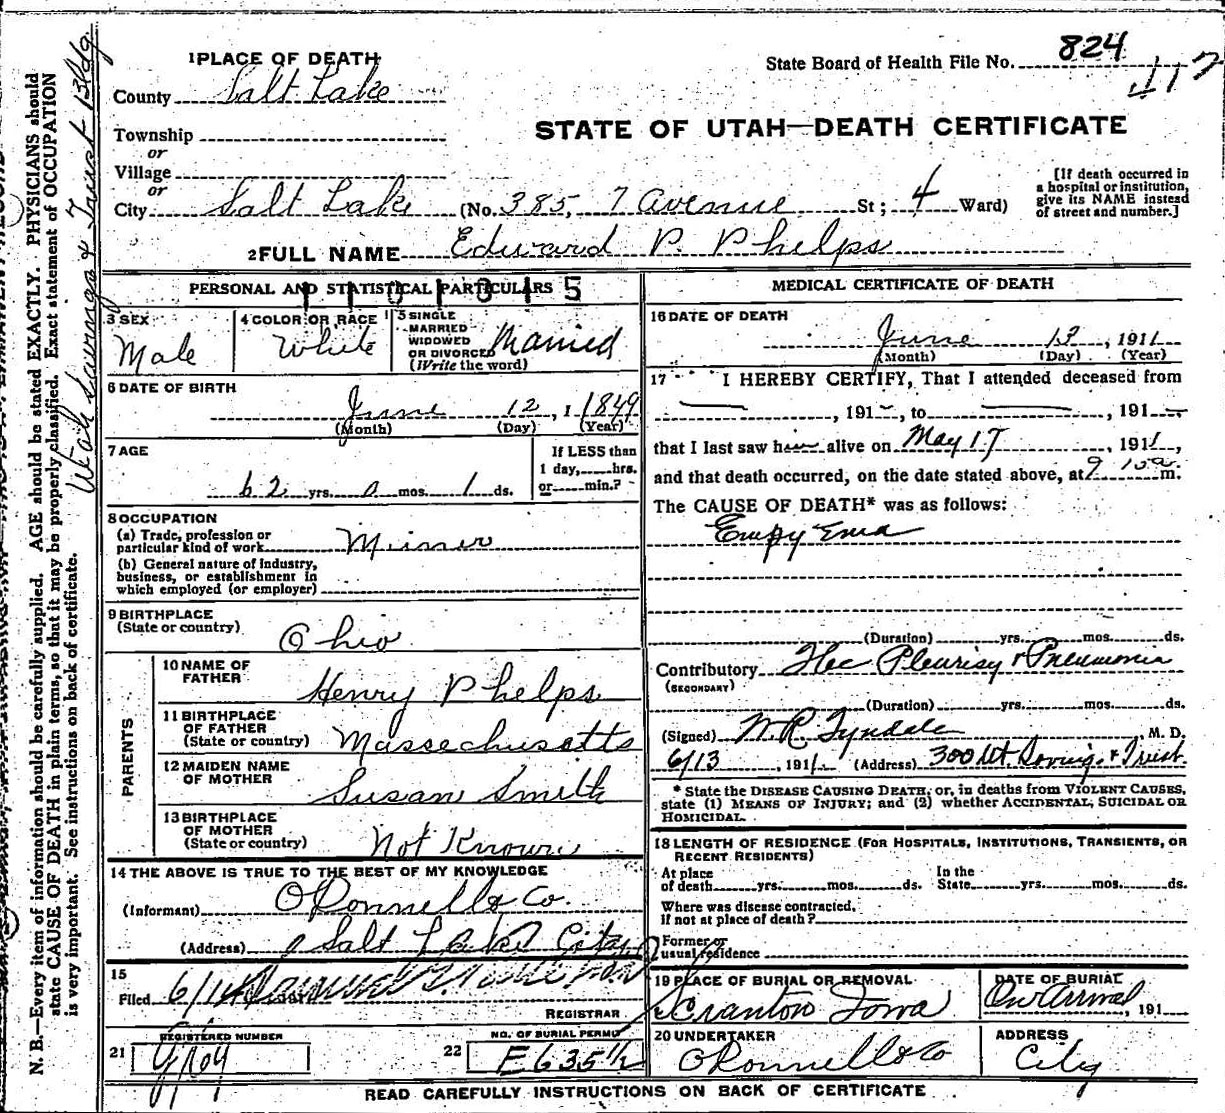 State Board of Health File No. 824
117
1 PLACE OF DEATH
County Salt Lake
STATE OF UTAH—DEATH CERTIFICATE
Township
or
Village
or
City Salt Lake (No. 385, 7 Avenue St; 4 Ward)
[If death occurred in
a hospital or institution,
give its NAME instead
of street and number.]
2 FULL NAME Edward P. Phelps
PERSONAL AND STATISTICAL PARTICULARS
3 SEX
Male
4 COLOR OR RACE
White
5 SINGLE
MARRIED
WIDOWED
OR DIVORCED
(Write the word)
Married
6 DATE OF BIRTH
June 12, 1 1849
(Month) (Day) (Year)
7 AGE
62 yrs. 0 mos. 1 ds.
If LESS than
1 day, hrs.
or min.?
8 OCCUPATION
(a) Trade, profession or
particular kind of work Miner
(b) General nature of industry,
business, or establishment in
which employed (or employer)
9 BIRTHPLACE
(State or country) Ohio
PARENTS
10 NAME OF
FATHER Henry Phelps
11 BIRTHPLACE
OF FATHER
(State or country) Massechusetts
12 MAIDEN NAME
OF MOTHER Susan Smith
13 BIRTHPLACE
OF MOTHER
(State or country) Not Known
14 THE ABOVE IS TRUE TO THE BEST OF MY KNOWLEDGE
(Informant) O'Donnell & Co.
(Address) Salt Lake City
15
Filed 6/14
REGISTRAR
REGISTERED NUMBER
21
NO. OF BURIAL PERMIT
22 E635½
MEDICAL CERTIFICATE OF DEATH
16 DATE OF DEATH
June 13, 1911
(Month) (Day) (Year)
17 I HEREBY CERTIFY, That I attended deceased from
, 191 , to , 191
that I last saw him alive on May 17, 1911,
and that death occurred, on the date stated above, at 9 10 a m.
The CAUSE OF DEATH* was as follows:
Empyema
(Duration) yrs. mos. ds.
Contributory Pleurisy & Pneumonia
(SECONDARY)
(Duration) yrs. mos. ds.
(Signed) W. R. Tyndale, M. D.
6/13, 1911 (Address) 300 Ut. Savings & Trust
* State the DISEASE CAUSING DEATH, or, in deaths from VIOLENT CAUSES,
state (1) MEANS OF INJURY; and (2) whether ACCIDENTAL, SUICIDAL OR
HOMICIDAL.
18 LENGTH OF RESIDENCE (FOR HOSPITALS, INSTITUTIONS, TRANSIENTS, OR
RECENT RESIDENTS)
At place
of death yrs. mos. ds.
In the
State yrs. mos. ds.
Where was disease contracted,
if not at place of death?
Former or
usual residence
19 PLACE OF BURIAL OR REMOVAL
Scranton Iowa
DATE OF BURIAL
On Arrival, 191
20 UNDERTAKER
O'Donnell & Co
ADDRESS
City
READ CAREFULLY INSTRUCTIONS ON BACK OF CERTIFICATE
N. B.—Every item of information should be carefully supplied. AGE should be stated EXACTLY. PHYSICIANS should
state CAUSE OF DEATH in plain terms, so that it may be properly classified. Exact statement of OCCUPATION
is very important. See instructions on back of certificate.
Utah Savings & Trust Bldg